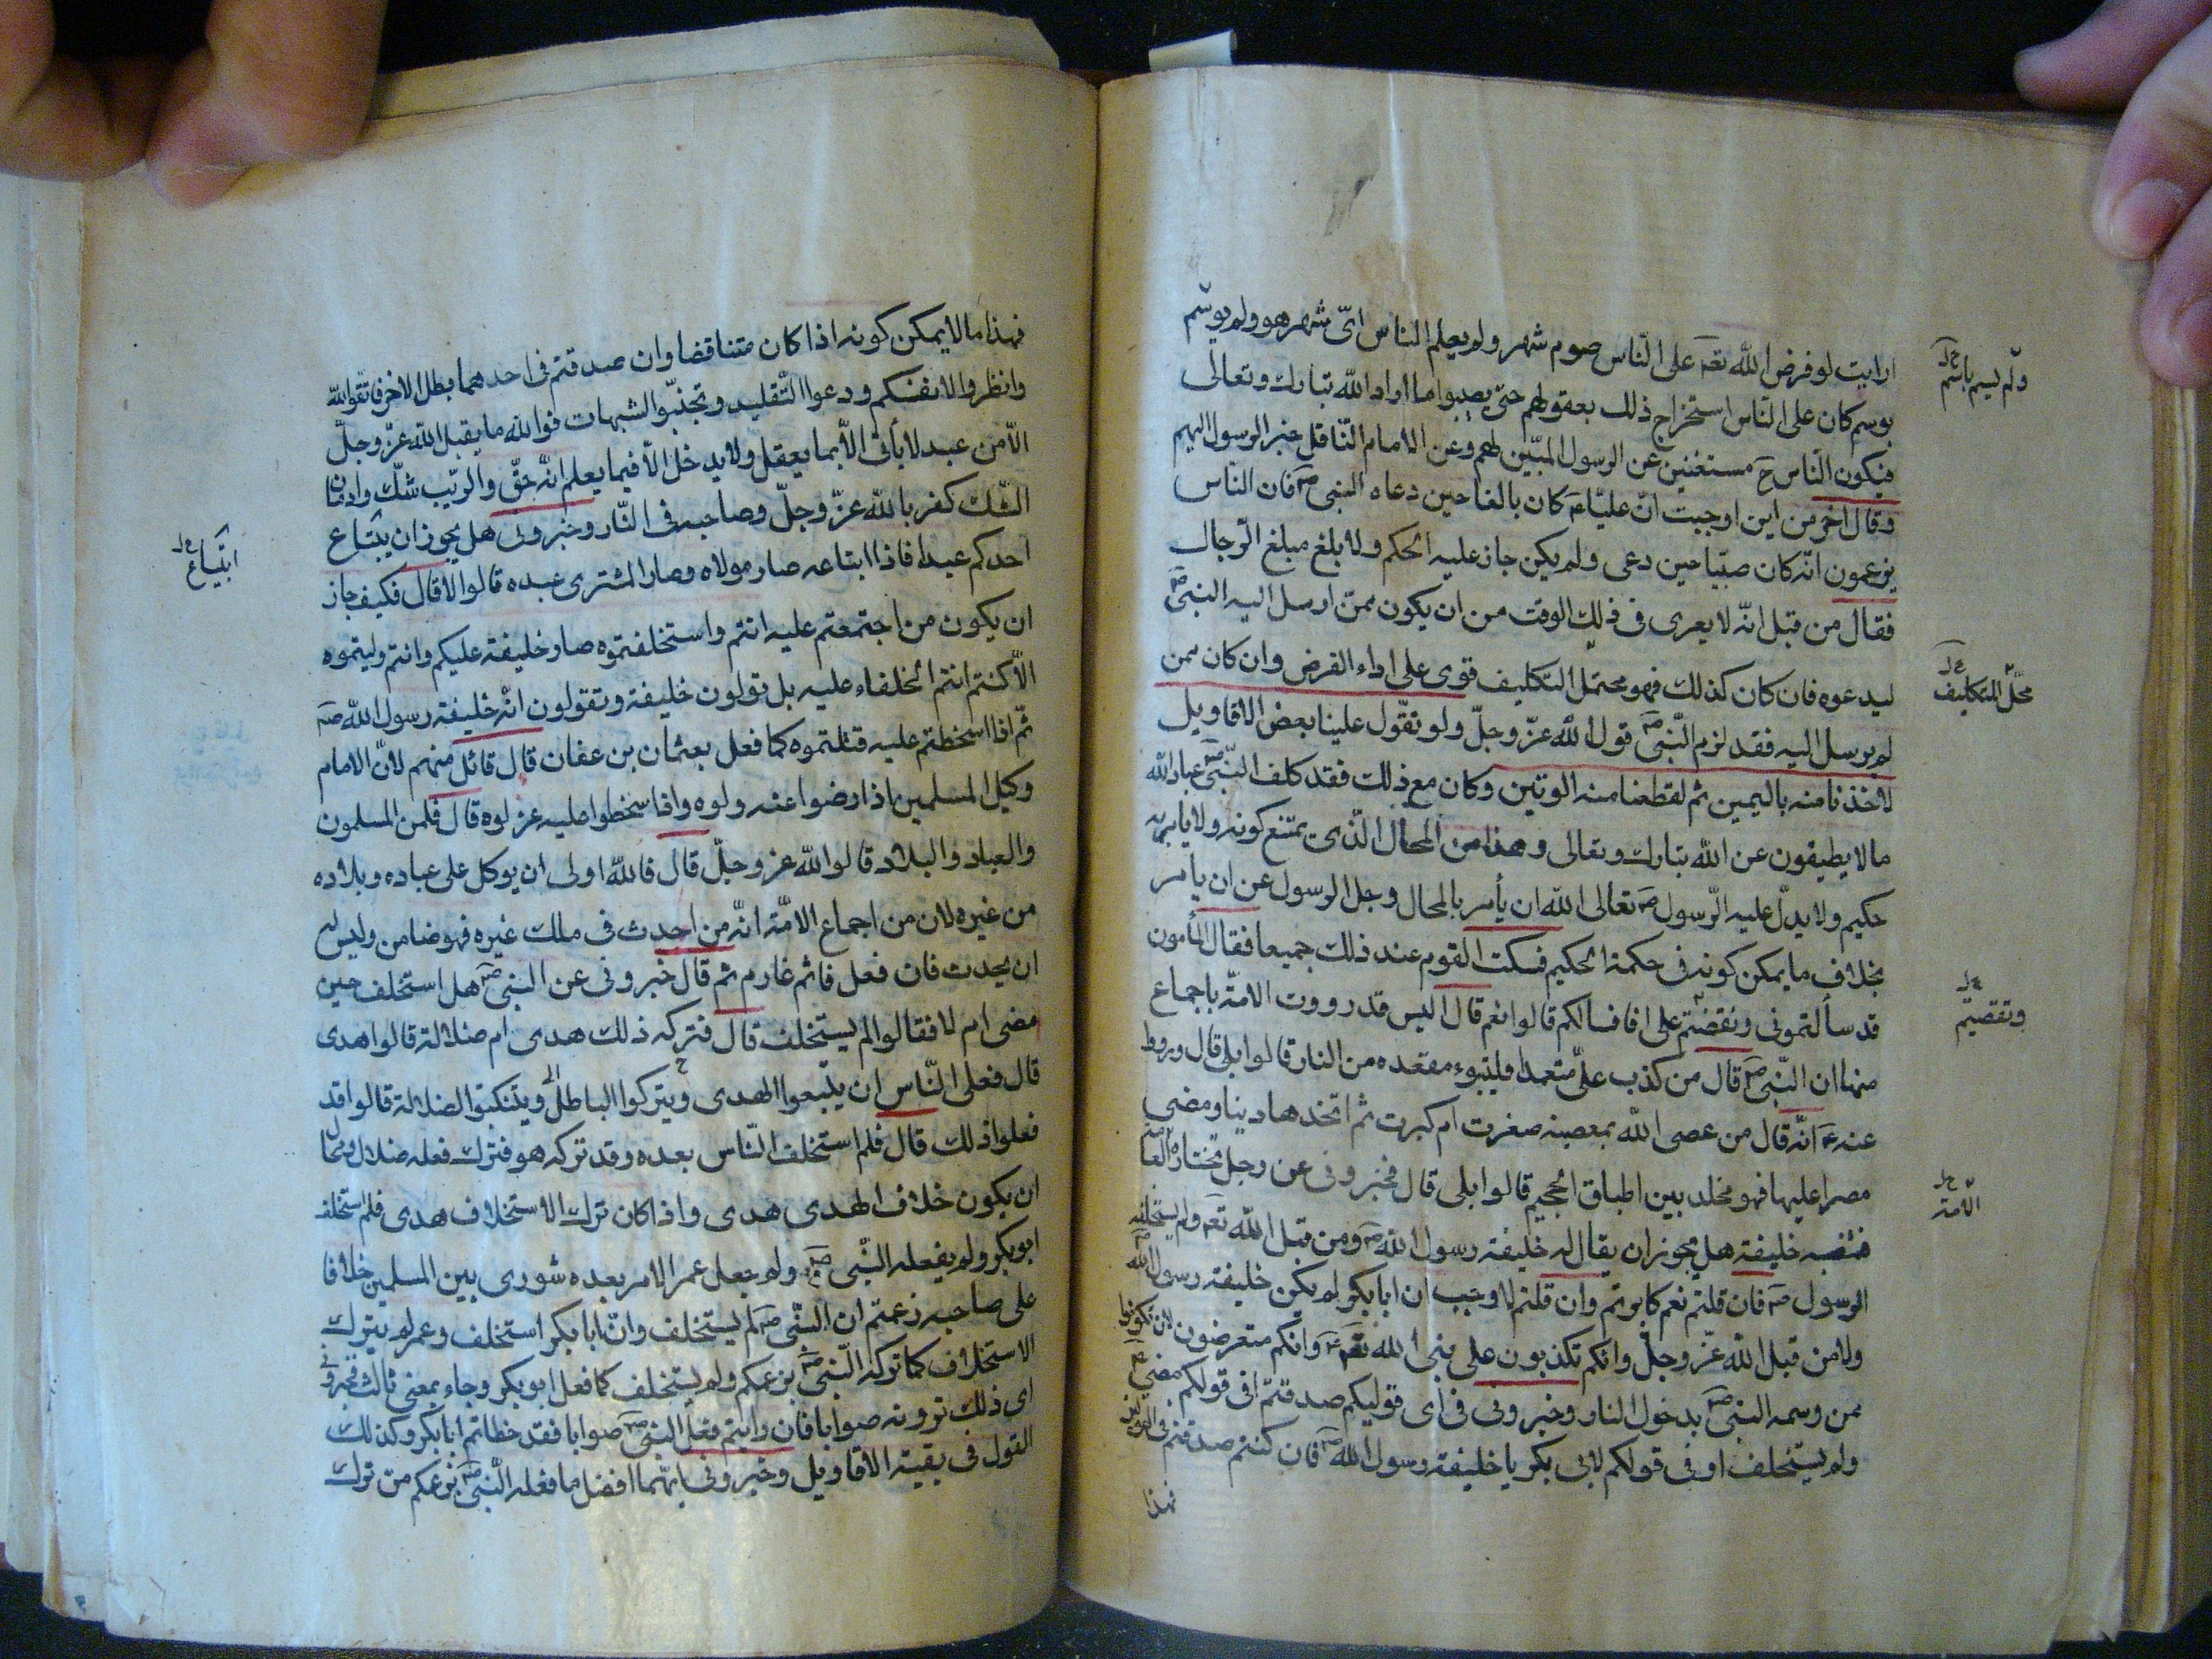 ارايت لو فرض الله تعم على الناس صوم شهر ولم يعلم الناس اىّ شهر هو ولم يوسّم
بوسم كان على الناس استخراج ذلك بعقولهم حتى يصيبوا ما اراد الله تبارك وتعالى
فيكون الناس ح مستغنين عن الرسول المبيّن لهم وعن الامام الناقل خبر الرسول اليهم
وقال اخر من اين اوجبت انّ عليّا ع كان بالغا حين دعاه النبى ص فان الناس
يزعمون انّه كان صبيّا حين دعى ولم يكن جاز عليه الحكم ولا بلغ مبلغ الرّجال
فقال من قبل انّه لا يعرى فى ذلك الوقت من ان يكون ممن ارسل اليه النبىّ ص
ليدعوه فان كان كذلك فهو محتمل التكليف قوى على اداء الفرض وان كان ممن
لم يرسل اليه فقد لزم النّبى ص قول الله عزّ وجلّ ولو تقوّل علينا بعض الاقاويل
لاخذنا منه باليمين ثم لقطعنا منه الوتين وكان مع ذلك فقد كلف النّبىّ ص عباد الله
ما لا يطيقون عن الله تبارك وتعالى وهذا من المحال الّذى يمتنع كونه ولا يامر به
حكيم ولا يدلّ عليه الرّسول ص تعالى الله ان يأمر بالمحال وجل الرسول عن ان يامر
بخلاف ما يمكن كونه فى حكمة الحكيم فسكت القوم عند ذلك جميعا فقال المأمون
قد سألتمونى ونقضتم على افاسالكم قالوا نعم قال اليس قد رووت الامّة باجماع
منها ان النّبى ص قال من كذب علىّ متعمدا فليتبوء مقعده من النار قالوا بلى قال ورووا
عنه ع انّه قال من عصى الله بمعصية صغرت ام كبرت ثم اتخذها دينا ومضى
مصرا عليها فهو مخلد بين اطباق الجحيم قالوا بلى قال فخبرونى عن رجل تختاره العامة
فتنصبه خليفة هل يجوز ان يقال له خليفة رسول الله ص ومن قبل الله تعم ولم يستخلفه
الرسول ص فان قلتم نعم كابرتم وان قلتم لا وجب ان ابا بكر لم يكن خليفة رسول الله
ولا من قبل الله عزّ وجلّ وانكم تكذبون على نبى الله تعم ع وانكم متعرضون لان تكونوا
ممن وسمه النبى ص بدخول النار وخبرونى فى اى قوليكم صدقتم افى قولكم مضى ع
ولم يستخلف او فى قولكم لابى بكر يا خليفة رسول الله ص فان كنتم صدقتم فى القولين
فهذا
ولم يسم باسم
محلّ التكليف
الامّة
فهذا ما لا يمكن كونه اذا كان متناقضا وان صدقتم فى احدهما بطل الاخر فاتقوا الله
وانظروا لانفسكم ودعوا التّقليد وتجنّبوا الشبهات فوالله ما يقبل الله عزّ وجلّ
الّا من عبد لا يأتى الّا بما يعقل ولا يدخل الّا فيما يعلم انّه حقّ والريّب شكّ وادمان
الشّك كفر بالله عزّ وجلّ وصاحبه فى النّار وخبرونى هل يجوز ان يبتاع
احدكم عبدا فاذا ابتاعه صار مولاه وصار المشترى عبده قالوا لا قال فكيف جاز
ان يكون من اجتمعتم عليه انتم واستخلفتموه صار خليفة عليكم وانتم وليتموه
الّا كنتم انتم الخلفاء عليه بل تولون خليفة وتقولون انّه خليفة رسول الله ص
ثمّ اذا اسخطتم عليه قتلتموه كما فعل بعثمان بن عفان قال قائل منهم لانّ الامام
وكيل المسلمين اذا رضوا عنه ولوه واذا سخطوا عليه عزلوه قال فلمن المسلمون
والعباد والبلاد قالوا لله عز وجلّ قال فالله اولى ان يوكل على عباده وبلاده
من غيره لان من اجماع الامّة انّه من احدث فى ملك غيره فهو ضامن وليس له
ان يحدث فان فعل فاثم غارم ثم قال خبرونى عن النبى ص هل استخلف حين
مضى ام لا فقالوا لم يستخلف قال فتركه ذلك هدى ام ضلالة قالوا هدى
قال فعلى النّاس ان يتّبعوا الهدى ويتركوا الباطل ويتنكبوا الضلالة قالوا قد
فعلوا ذلك قال فلم استخلف النّاس بعده وقد تركه هو فترك فعله ضلال ومحال
ان يكون خلاف الهدى هدى واذا كان ترك الاستخلاف هدى فلم استخلف
ابو بكر ولم يفعله النّبى ص ولم جعل عمر الامر بعده شورى بين المسلمين خلافا
على صاحبه زعمتم ان النّبى ص لم يستخلف وانّ ابا بكر استخلف وعمر لم يترك
الاستخلاف كما تركه النّبى ص بزعمكم ولم يستخلف كما فعل ابو بكر وجاء بمعنى ثالث فخبرونى
اى ذلك ترونه صوابا فان رايتم فعل النبى ص صوابا فقد خطاتم ابا بكر وكذلك
القول فى بقية الاقاويل وخبرونى ايهما افضل ما فعله النّبى ص بزعمكم من ترك
ابتياع